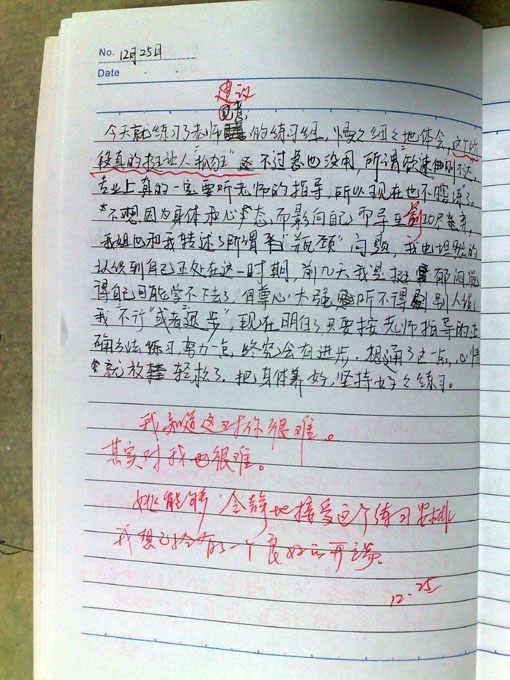 No. 12月25日
Date
建议
今天就练习了老师的练习经，慢慢细细地体会，这个时
段真的挺让人“抓狂”，不过急也没用，所谓“欲速则不达”，
专业上真的一定要听老师的指导，所以现在也不瞎练了。
不想因为身体和心态，而影响自己而导至前功尽弃，
我姐也和我转述了所谓“瓶颈”问题，我也坦然的
认识到自己正处在这一时期，前几天我是挺郁闷，觉
得自己可能学不下去了，自尊心太强，听不得别人说
我“不行”或者“退步”，现在明白了只要按老师指导的正
确方法练习，努力一点，终究会有进步，想通了这一点，心情
就放轻松了，把身体养好，坚持好好练习。
我知道这对你很难。
其实对我也很难。
你能够安静地接受这个练习安排
我想已经有了一个良好的开端。
12.25